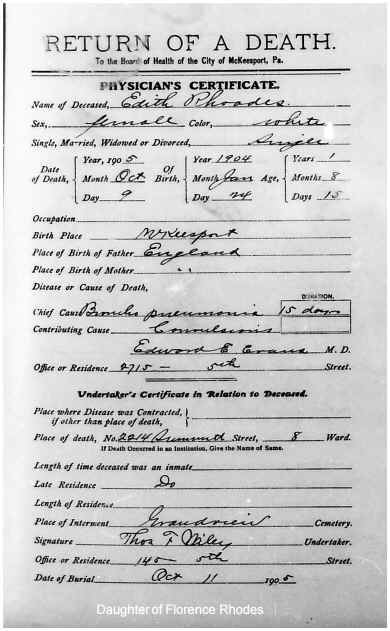 RETURN OF A DEATH.
To the Board of Health of the City of McKeesport, Pa.
PHYSICIAN'S CERTIFICATE.
Name of Deceased, Edith Rhoades.
Sex, female Color, white
Single, Married, Widowed or Divorced, Single
Date of Death, Year, 1905 Month Oct Day 9 Of Birth, Year 1904 Month Jan Day 24 Age, Years 1 Months 8 Days 15
Occupation
Birth Place McKeesport
Place of Birth of Father England
Place of Birth of Mother " "
Disease or Cause of Death,
DURATION.
Chief Cause Broncho pneumonia 15 days
Contributing Cause Convulsions
Edward E Evans M. D.
Office or Residence 2715 - 5th Street.
Undertaker's Certificate in Relation to Deceased.
Place where Disease was Contracted,
if other than place of death,
Place of death, No. 2214 Summit Street, 8 Ward.
If Death Occurred in an Institution, Give the Name of Same.
Length of time deceased was an inmate
Late Residence Do
Length of Residence
Place of Interment Grandview Cemetery.
Signature Thos F Wiley Undertaker.
Office or Residence 145 - 5th Street.
Date of Burial Oct 11 1905
Daughter of Florence Rhodes